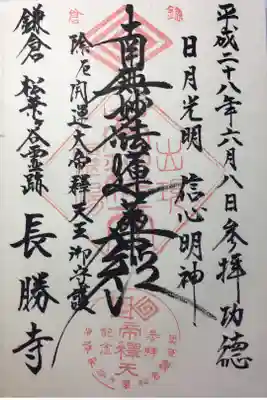 平成二十八年六月八日参拝功徳
日月光明 信心明神
南無妙法蓮華経
除厄開運大帝釋天王御守護
鎌倉 松葉谷霊跡 長勝寺
鎌
倉
帝釋天
参拝
記念